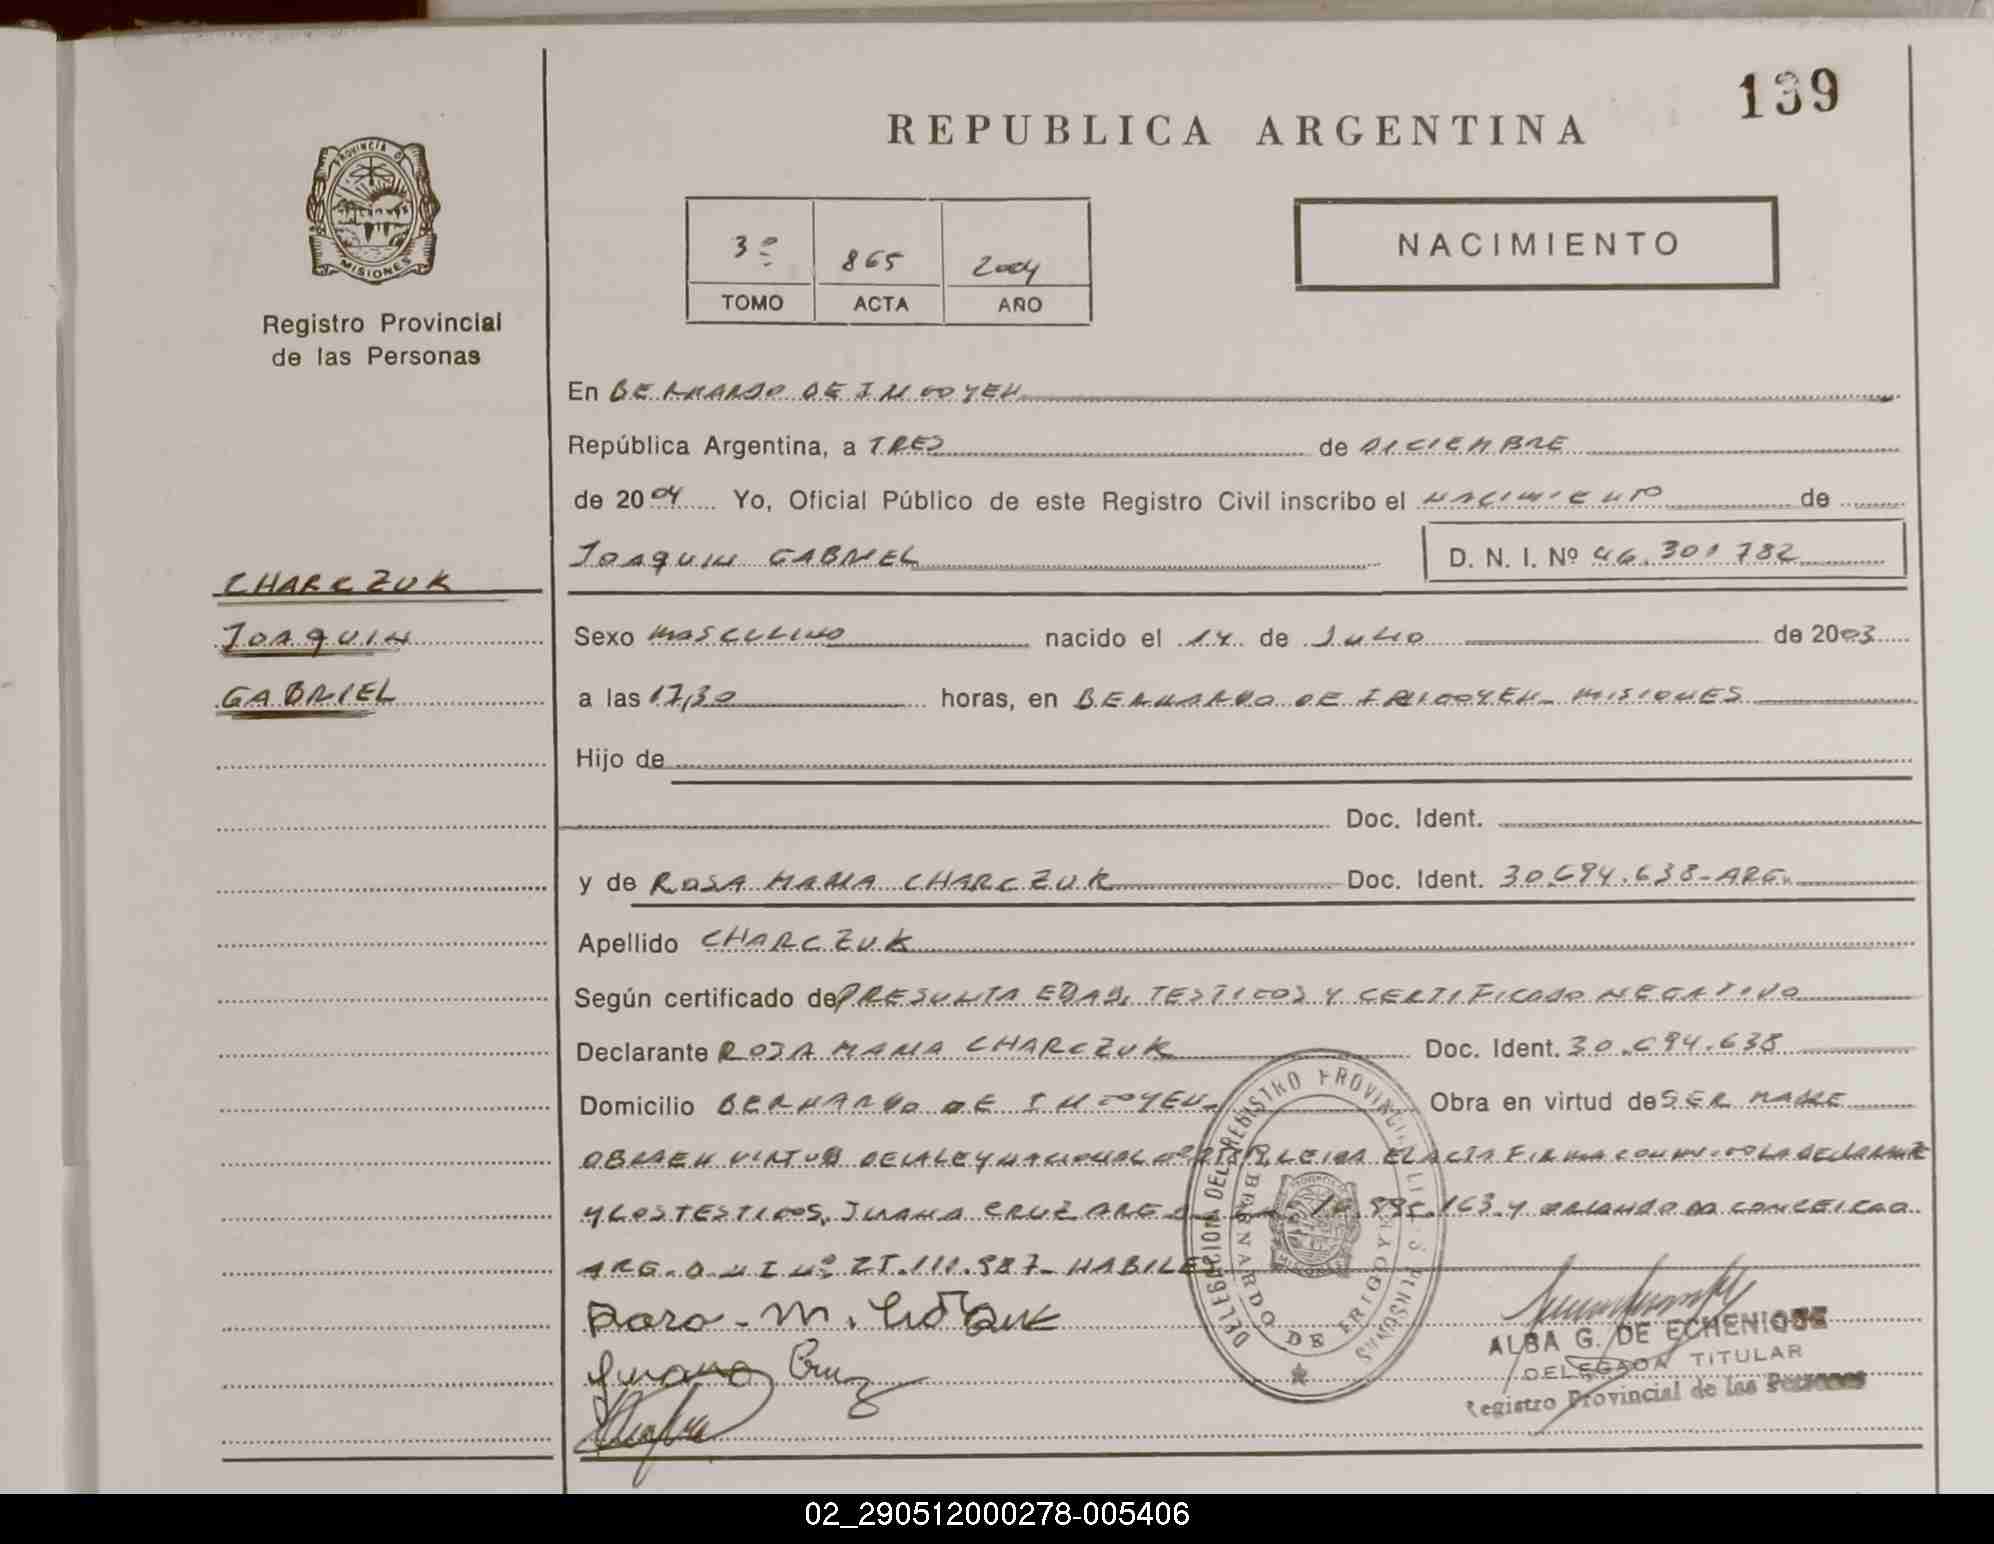 139
REPUBLICA ARGENTINA
PROVINCIA DE
MISIONES
Registro Provincial
de las Personas
3º 865 2004
TOMO ACTA AÑO
NACIMIENTO
En BERNARDO DE IRIGOYEN
República Argentina, a TRES de DICIEMBRE
de 2004 Yo, Oficial Público de este Registro Civil inscribo el NACIMIENTO de
JOAQUIN GABRIEL D. N. I. Nº 46.301782
CHARCZUK
JOAQUIN
GABRIEL
Sexo MASCULINO nacido el 14 de JULIO de 2003
a las 17,30 horas, en BERNARDO DE IRIGOYEN - MISIONES
Hijo de
Doc. Ident.
y de ROSA MARIA CHARCZUK Doc. Ident. 30.694.638-ARG.
Apellido CHARCZUK
Según certificado de PRESUNTA EDAD, TESTIGOS Y CERTIFICADO NEGATIVO
Declarante ROSA MARIA CHARCZUK Doc. Ident. 30.694.638
Domicilio BERNARDO DE IRIGOYEN Obra en virtud de SER MADRE
OBRA EN VIRTUD DE LA LEY NACIONAL LEIDA EL ACTA FIRMA CONMIGO LA DECLARANTE
Y LOS TESTIGOS, JUANA CRUZ ARG 163 Y ORLANDO DA CONCEICAO
ARG. D N I Nº 111.987- HABILES
DELEGACION DEL REGISTRO PROVINCIAL DE LAS PERSONAS
BERNARDO DE IRIGOYEN
Rosa - M.
Juana Cruz
ALBA G. DE ECHENIQUE
DELEGADA TITULAR
Registro Provincial de las Personas
02_290512000278-005406